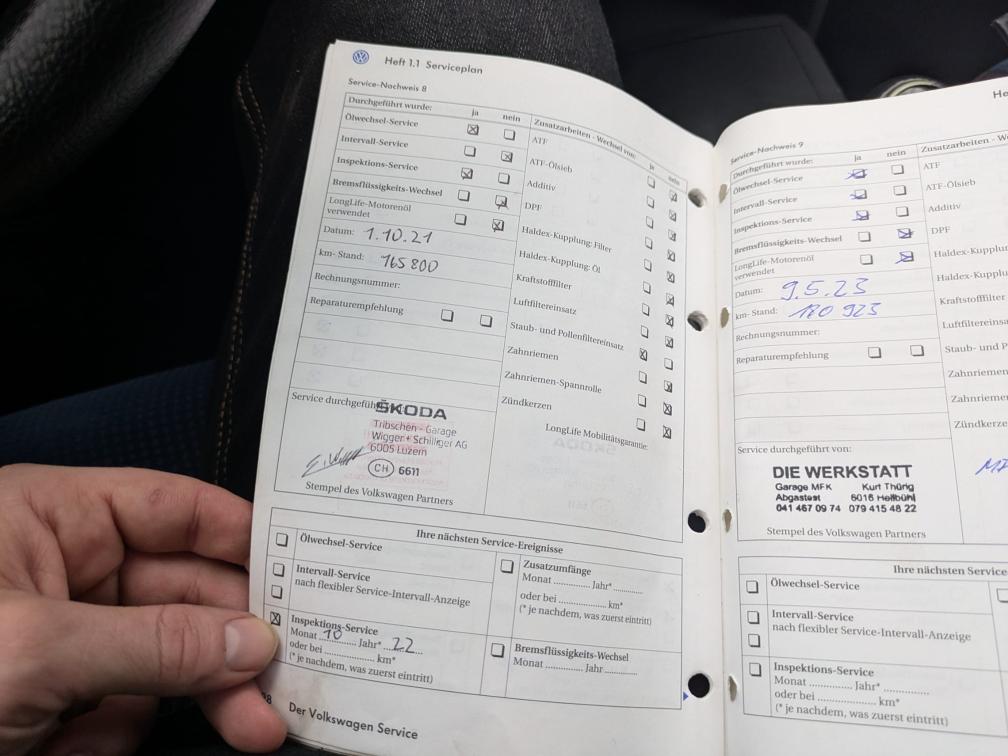 Heft 1.1 Serviceplan
Service-Nachweis 8
Durchgeführt wurde: ja nein
Ölwechsel-Service
Intervall-Service
Inspektions-Service
Bremsflüssigkeits-Wechsel
LongLife-Motorenöl
verwendet
Datum: 1.10.21
km- Stand: 165 800
Rechnungsnummer:
Reparaturempfehlung
Zusatzarbeiten - Wechsel von: ja nein
ATF
ATF-Ölsieb
Additiv
DPF
Haldex-Kupplung: Filter
Haldex-Kupplung: Öl
Kraftstofffilter
Luftfiltereinsatz
Staub- und Pollenfiltereinsatz
Zahnriemen
Zahnriemen-Spannrolle
Zündkerzen
LongLife Mobilitätsgarantie:
Service durchgeführt
ŠKODA
Tribschen - Garage
Wigger + Schilliger AG
6005 Luzern
CH 6611
Stempel des Volkswagen Partners
Ihre nächsten Service-Ereignisse
Ölwechsel-Service
Intervall-Service
nach flexibler Service-Intervall-Anzeige
Inspektions-Service
Monat 10 Jahr* 22
oder bei ................ km*
(* je nachdem, was zuerst eintritt)
Zusatzumfänge
Monat ............ Jahr* ............
oder bei ................ km*
(* je nachdem, was zuerst eintritt)
Bremsflüssigkeits-Wechsel
Monat ............ Jahr ............
Der Volkswagen Service
Service-Nachweis 9
Durchgeführt wurde: ja nein
Ölwechsel-Service
Intervall-Service
Inspektions-Service
Bremsflüssigkeits-Wechsel
LongLife-Motorenöl
verwendet
Datum: 9.5.23
km- Stand: 180 923
Rechnungsnummer:
Reparaturempfehlung
Zusatzarbeiten - W
ATF
ATF-Ölsieb
Additiv
DPF
Haldex-Kupplu
Haldex-Kuppl
Kraftstofffilter
Luftfiltereins
Staub- und P
Zahnriemen
Zahnriemen
Zündkerze
Service durchgeführt von:
DIE WERKSTATT
Garage MFK Kurt Thürig
Abgastest 6016 Hellbühl
041 467 09 74 079 415 48 22
Stempel des Volkswagen Partners
Ihre nächsten Service
Ölwechsel-Service
Intervall-Service
nach flexibler Service-Intervall-Anzeige
Inspektions-Service
Monat ............ Jahr* ............
oder bei ................ km*
(* je nachdem, was zuerst eintritt)